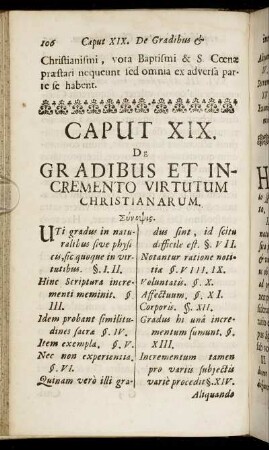 106 Caput XIX. De Gradibus &
Christianismi, vota Baptismi & S. Cœnæ
præstari nequeunt sed omnia ex adversâ par-
te se habent.
CAPUT XIX.
DE
GRADIBUS ET IN-
CREMENTO VIRTUTUM
CHRISTIANARUM.
Σύνοψις.
UTi gradus in natu-
ralibus sive physi-
cis, sic quoque in vir-
tutibus. §. I. II.
Hinc Scriptura incre-
menti meminit. §.
III.
Idem probant similitu-
dines sacræ §. IV.
Item exempla. §. V.
Nec non experientia.
§. VI.
Quinam verò illi gra-
dus sint, id scitu
difficile est. §. VII.
Notantur ratione noti-
tiæ §. VIII. IX.
Voluntatis. §. X.
Affectuum. §. XI.
Corporis. §. XII.
Gradus hi unà incre-
mentum sumunt. §.
XIII.
Incrementum tamen
pro variis subjectis
variè procedit §. XIV.
Aliquando